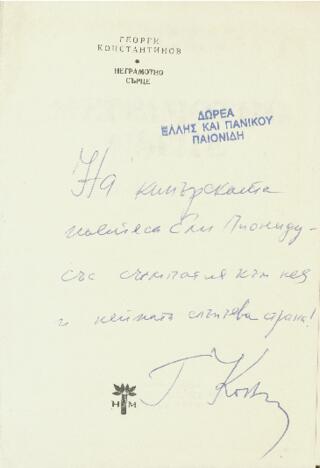 ГЕОРГИ
КОНСТАНТИНОВ
НЕГРАМОТНО
СЪРЦЕ
ΔΩΡΕΑ
ΕΛΛΗΣ ΚΑΙ ΠΑΝΙΚΟΥ
ΠΑΙΟΝΙΔΗ
На кипърската
поетеса Ели Пиониду -
със симпатия към нея
и нейната слънчева страна!
Г Конс
НМ